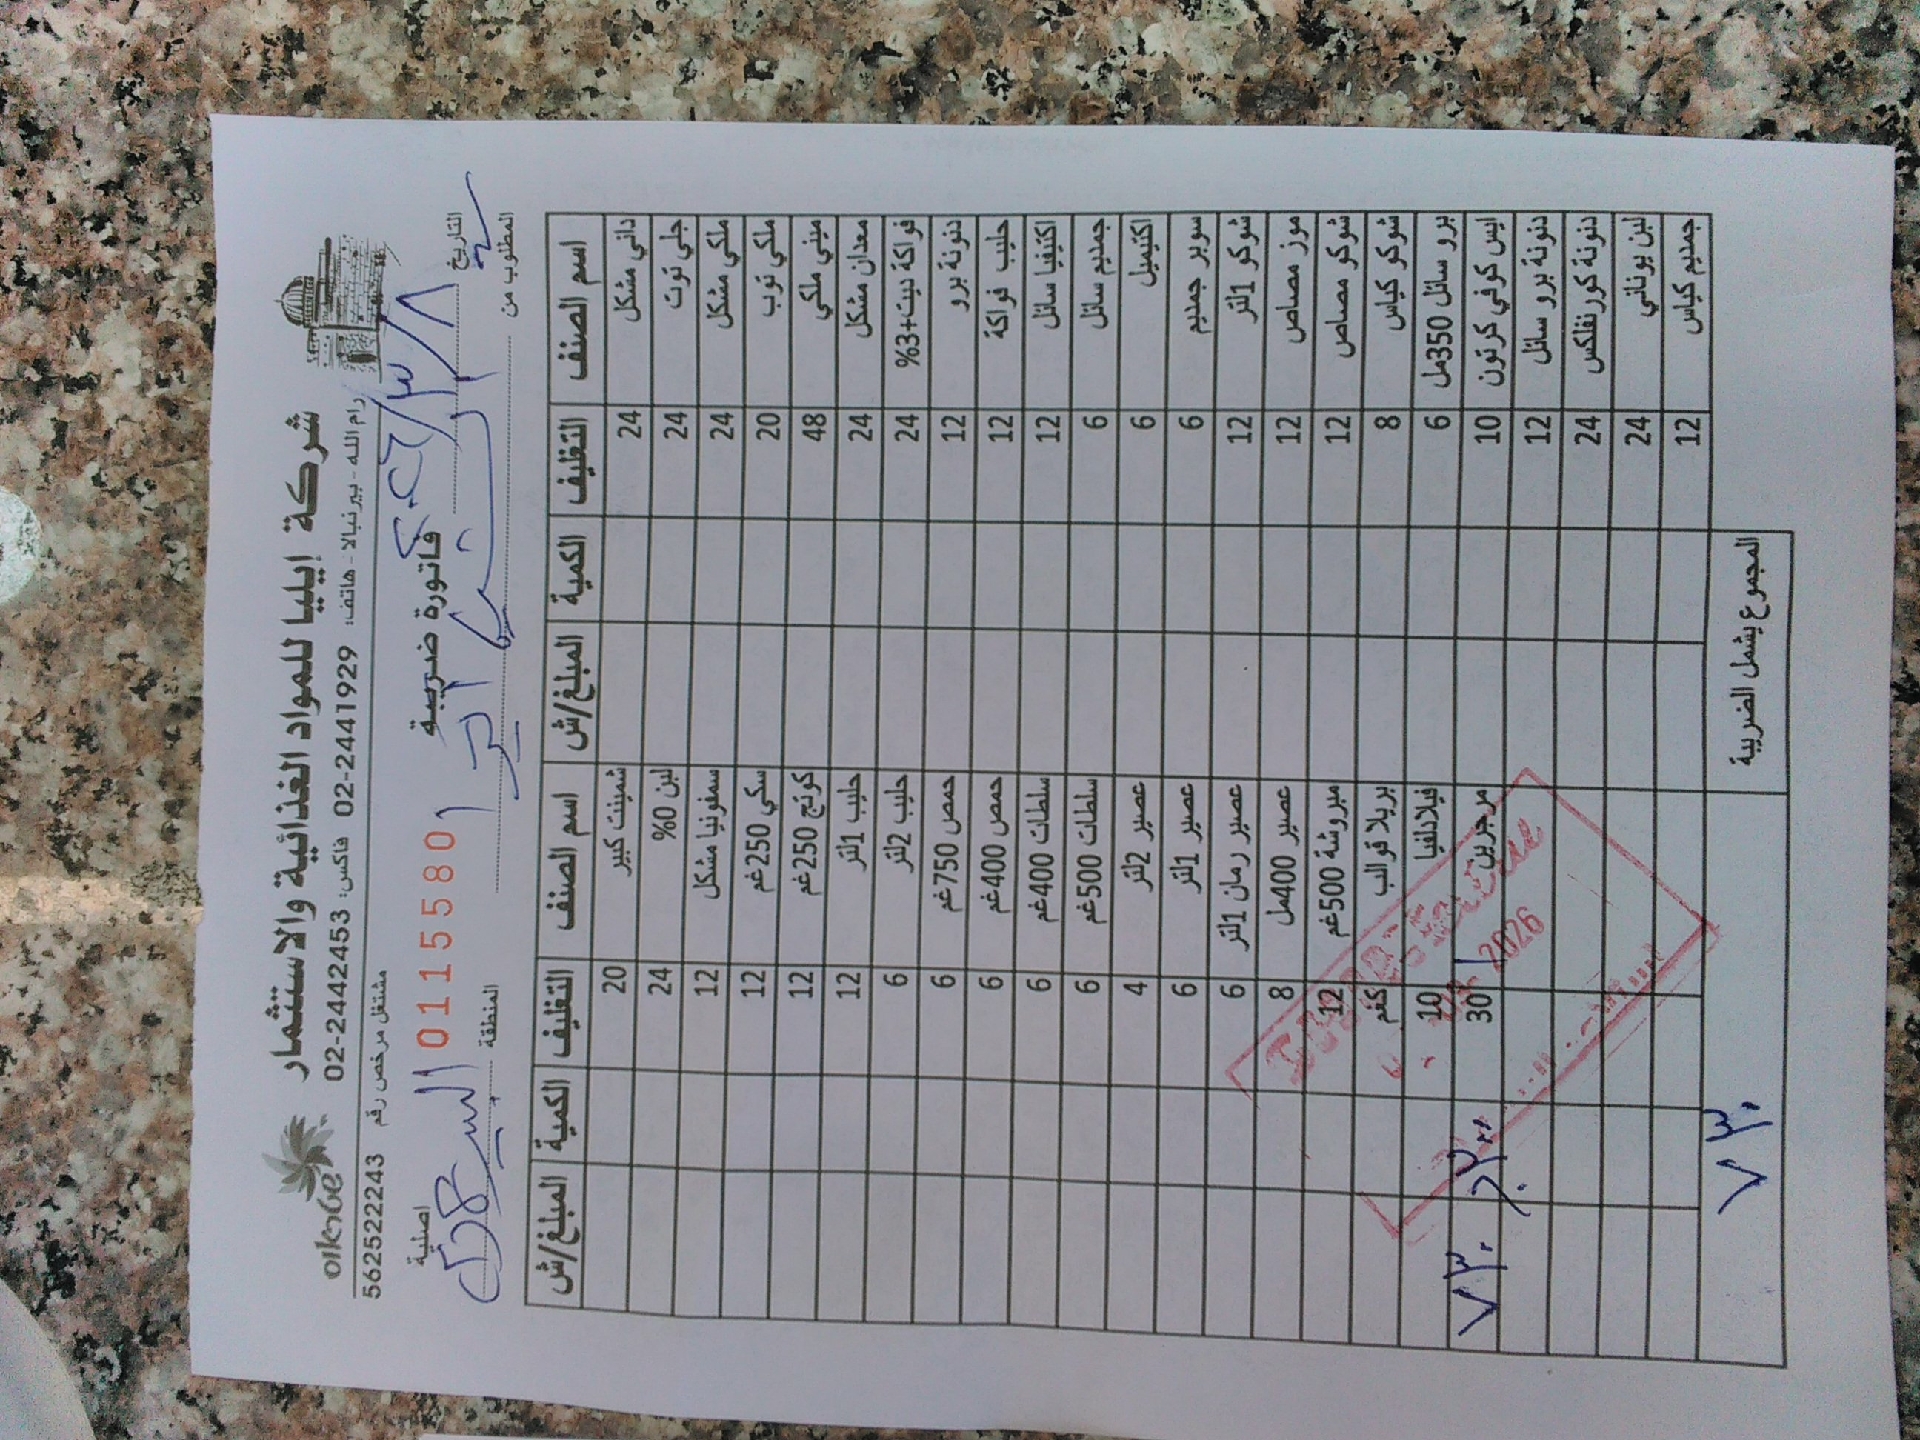 شركة ايليا للمواد الغذائية والاستثمار
رام الله - بيرنبالا - هاتف: 02-2441929 فاكس: 02-2442453 مشتغل مرخص رقم 562522243
٢٠٢٦/٣/٨
التاريخ
فاتورة ضريبية
0115580
اصلية
المطلوب من
المنطقة
اسم الصنف التغليف الكمية المبلغ/ش اسم الصنف التغليف الكمية المبلغ/ش
داني مشكل 24 شمينت كبير 20
جلي توت 24 لبن 0% 24
ملكي مشكل 24 سمفونيا مشكل 12
ملكي توب 20 سكي 250غم 12
ميني ملكي 48 كوتج 250غم 12
معدان مشكل 24 حليب 1لتر 12
فواكة نيت+3% 24 حليب 2لتر 6
دنونة برو 12 حمص 750غم 6
حليب فواكة 12 حمص 400غم 6
اكتيفيا سائل 12 سلطات 400غم 6
جمديم سائل 6 سلطات 500غم 6
اكتيميل 6 عصير 2لتر 4
سوبر جمديم 6 عصير 1لتر 6
شوكو 1لتر 12 عصير رمان 1لتر 6
موز مصاص 12 عصير 400مل 8
شوكو مصاص 12 مبروشة 500غم 12
شوكو كياس 8 بريلا قوالب كغم
برو سائل 350مل 6 فيلادلفيا 10
ايس كوفي كرتون 10 مرجرين 30 ٧٣٠
دنونة برو سائل 12
دنونة كورنفلكس 24
لبن يوناني 24
جمديم كياس 12
المجموع يشمل الضريبة ٧٣٠
2026